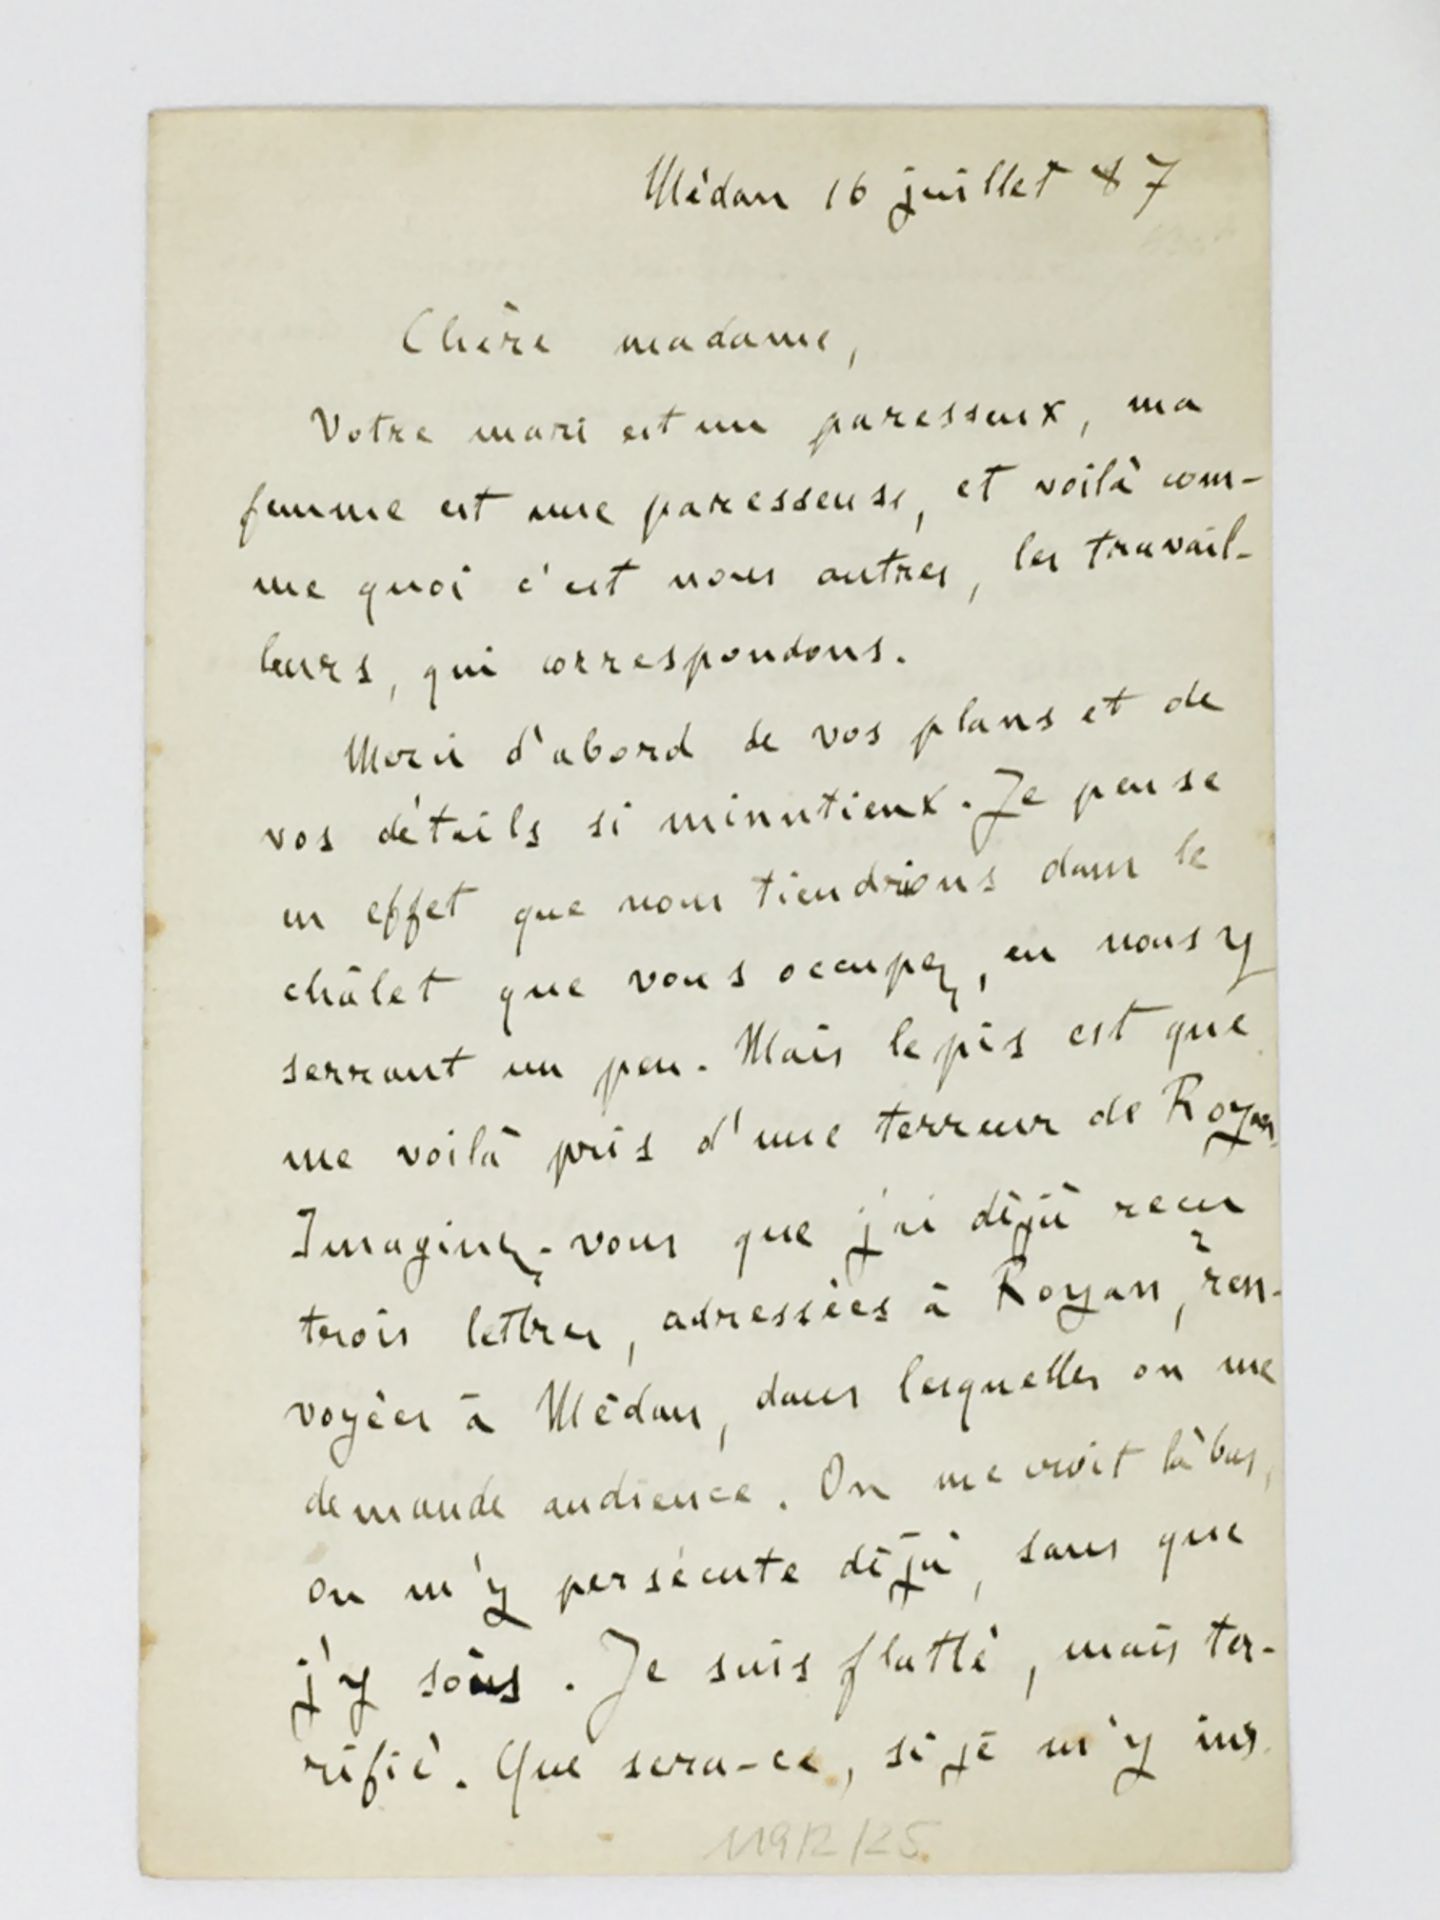 Médan 16 juillet 87
Chère madame,
Votre mari est un paresseux, ma
femme est une paresseuse, et voilà com-
me quoi c'est nous autres, les travail-
leurs, qui correspondons.
Merci d'abord de vos plans et de
vos détails si minutieux. Je pense
en effet que nous tiendrions dans le
châlet que vous occupez, en nous y
serrant un peu. Mais le pis est que
me voilà pris d'une terreur de Royan.
Imaginez-vous que j'ai déjà reçu
trois lettres, adressées à Royan, ren-
voyées à Médan, dans lesquelles on me
demande audience. On me croit là bas,
on m'y persécute déjà, sans que
j'y sois. Je suis flatté, mais ter-
rifié. Que sera-ce, si je m'y ins
119/2/25